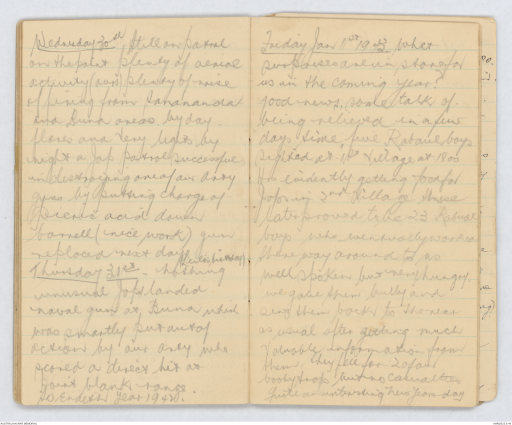 Wednesday 30th, Still on patrol
on the point plenty of aerial
activity (ours) plenty of noise
of firing from Sanananda
and Buna areas by day
flares and Very lights by
night a Jap patrol successful
in destroying one of our Arty
guns by putting charge of
Picric acid down
barrell (nice work) gun
replaced next day
Thursday 31st - Nothing
unusual Japs landed
naval gun at Buna which
was smartly put out of
action by our arty who
scored a direct hit at
point blank range.
So Endeth Year 1942.
Friday Jan 1st 1943 What
surprises are in store for
us in the coming year?
good news, some talk of
being relieved in a few
days time, five Rabaul boys
sighted at 1st Village at 1800
hrs evidently getting food for
Japs in 2nd Village these
later proved to be 23 Rabaul
boys who eventually worked
there way around to us
well spoken but very hungry.
we gave them bully and
sent them back to the rear
as usual after getting much
valuable information from
them, they fell for 2 of our
booby traps, but no casualties
Quite an interesting New Years day